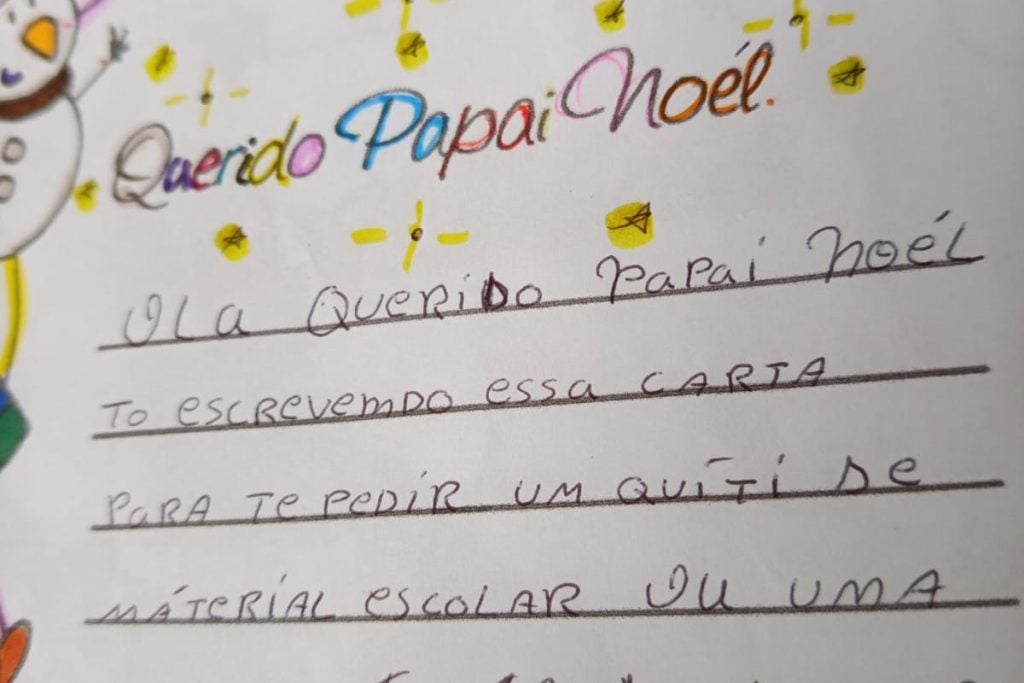 Querido Papai Noél.
OLa QUERIDO PAPAi NOÉL
TO escREVEMDO essa CARTA
PaRA Te PEDÍR UM QUÍTI De
MÁTERÍAL escOLAR OU UMA